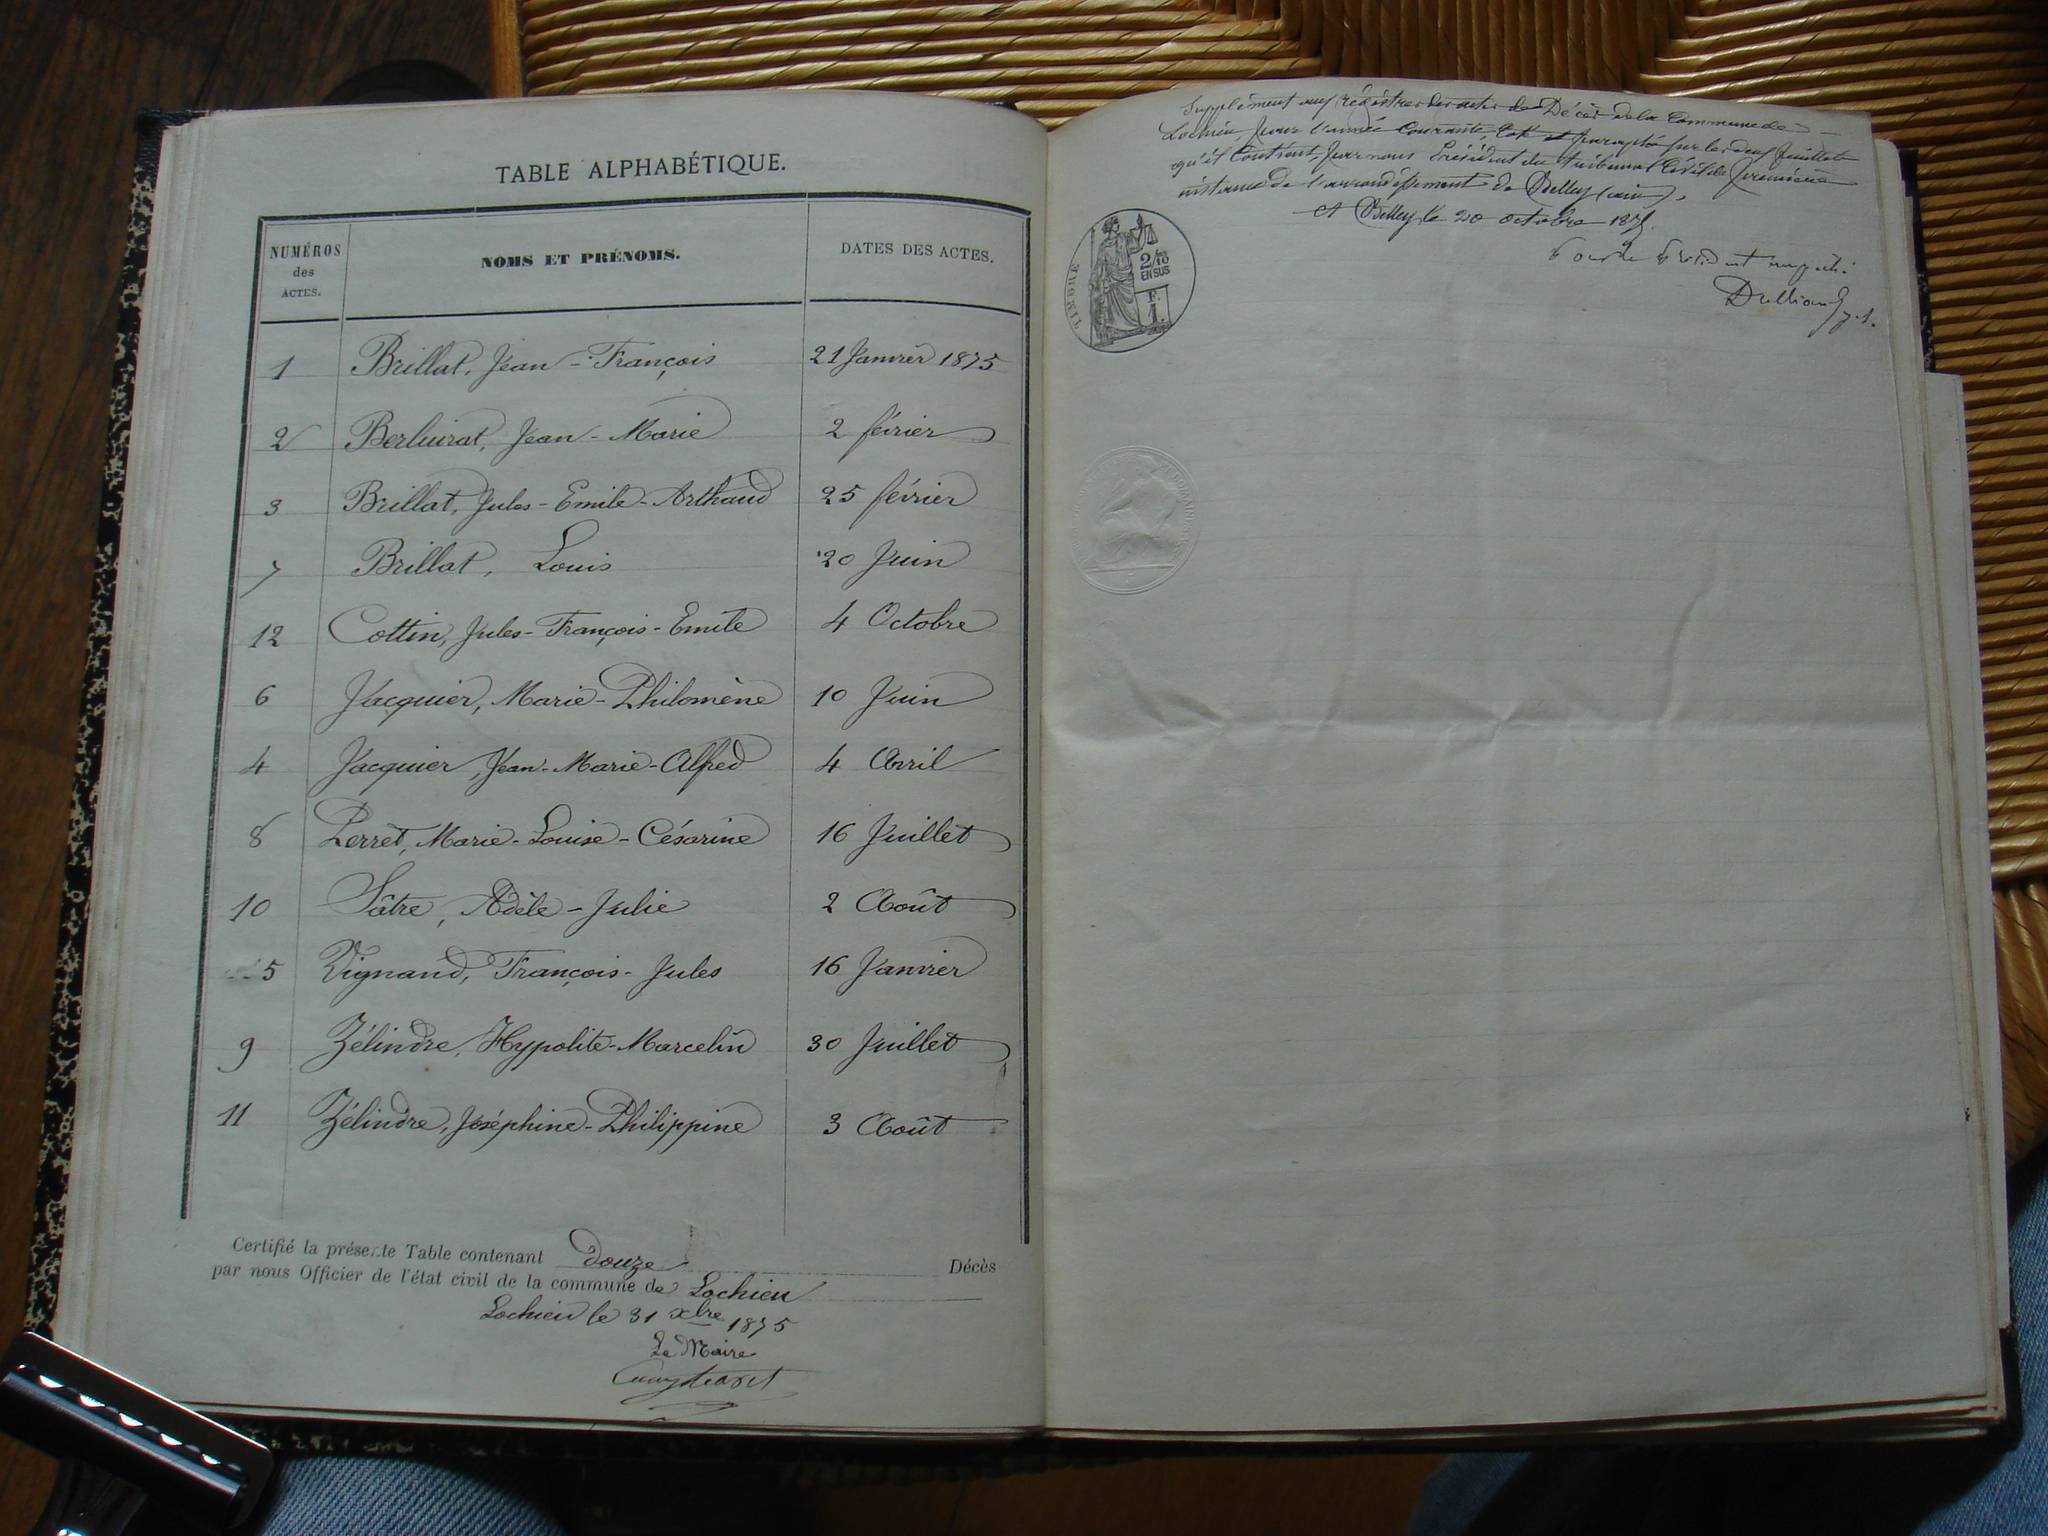 TABLE ALPHABÉTIQUE.
NUMÉROS des ACTES. NOMS ET PRÉNOMS. DATES DES ACTES.
1 Brillat, Jean-François 21 Janvier 1875
2 Jean-Marie 2 février
3 Brillat, Jules-Emile-Arthaud 25 février
7 Brillat, Louis 20 Juin
12 Cottin, Jules-François-Emile 4 Octobre
6 Jacquier, Marie-Philomène 10 Juin
4 Jacquier, Jean-Marie-Alfred 4 Avril
8 Perret, Marie-Louise-Césarine 16 Juillet
10 Sâtre, Adèle-Julie 2 Août
5 Vignand, François-Jules 16 Janvier
9 Zélindre, Hypolite-Marcelin 30 Juillet
11 Zélindre, Joséphine-Philippine 3 Août
Certifié la présente Table contenant douze Décès
par nous Officier de l'état civil de la commune de Lochieu
Lochieu le 31 xbre 1875
Le Maire
Supplément aux régistres des actes de Décès de la Commune de
Lochieu, pour l'année Courante, Coté et paraphé sur les deux feuillets
qu'il Contient, par nous Président du tribunal Civil de Première
instance de l'arrondissement de Belley (ain).
A Belley, le 20 octobre 1875.
Pour le Président empêché
TIMBRE
2/10
EN SUS
F.
1.